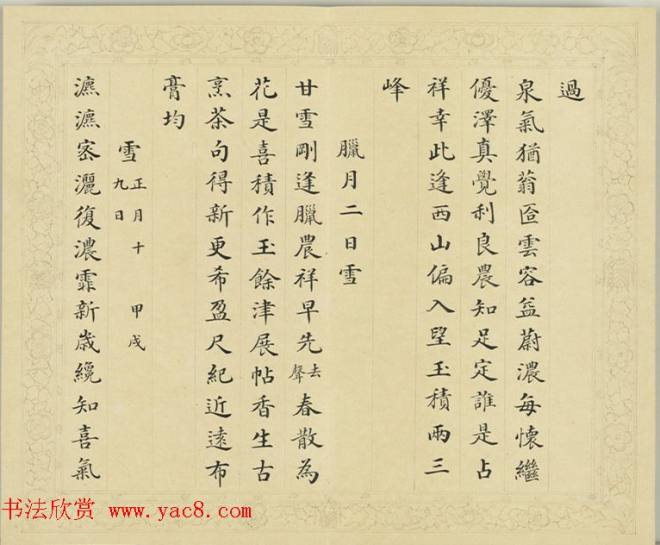 過
泉氣猶蓊匝雲容益蔚濃每懷繼
優澤真覺利良農知足定誰是占
祥幸此逢西山偏入望玉積兩三
峰
臘月二日雪
甘雪剛逢臘農祥早先去聲春散為
花是喜積作玉餘津展帖香生古
烹茶句得新更希盈尺紀近遠布
膏均
雪正月十九日 甲戌
瀌瀌密灑復濃霏新歲纔知喜氣
书法欣赏 www.yac8.com